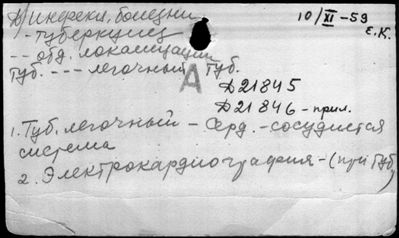 Инфекц. болезни 10/XI-59
- туберкулез Е.К.
-- общ. локализации
Туб. --- легочный Туб.
А
Д21845
Д21846 - прил.
1. Туб. легочный - Серд.-сосудистая
система
2. Электрокардиография - (при Туб)